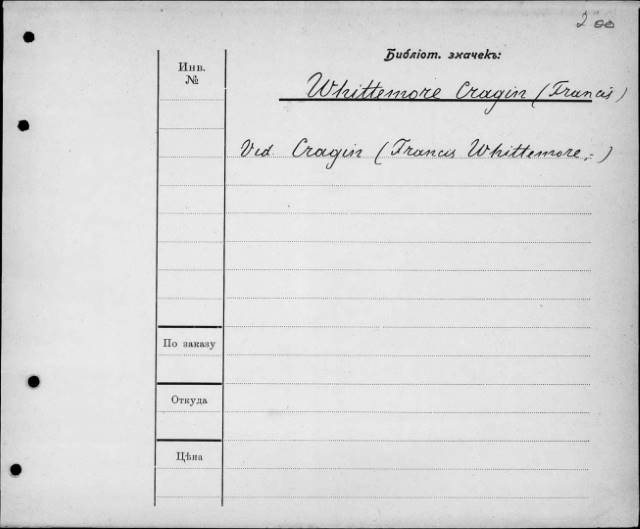 2
Библіот. значекъ:
Инв.
№
Whittemore Cragin (Francis)
Vid. Cragin (Francis Whittemore.)
По заказу
Откуда
Цѣна